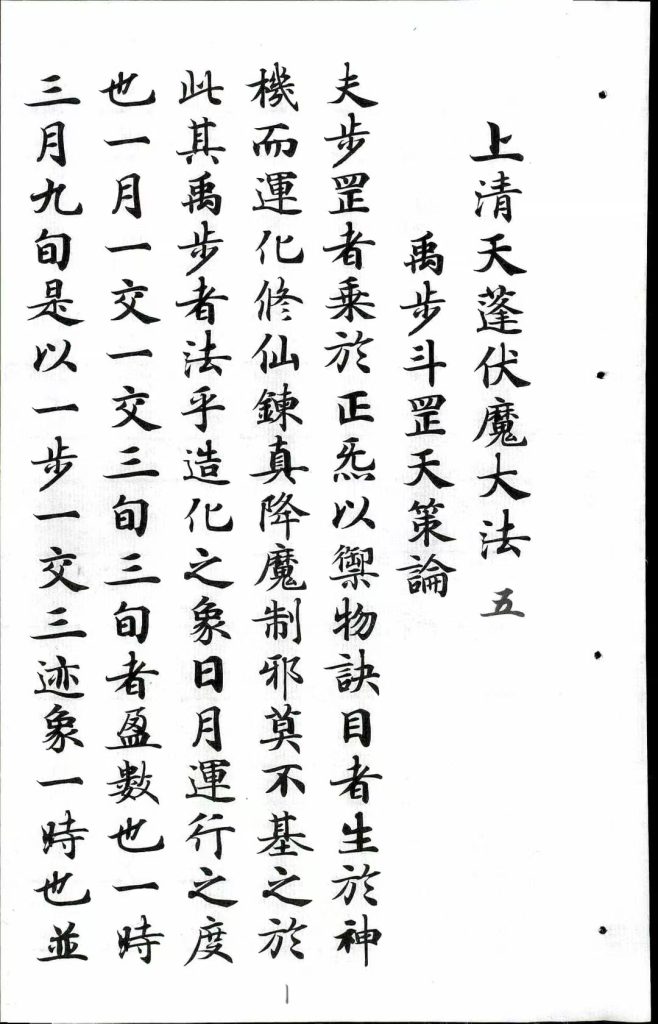 上清天蓬伏魔大法 五
禹步斗罡天策論
夫步罡者乗於正炁以禦物訣目者生於神
機而運化修仙鍊真降魔制邪莫不基之於
此其禹步者法乎造化之象日月運行之度
也一月一交一交三旬三旬者盈數也一時
三月九旬是以一步一交三迹象一時也並
1